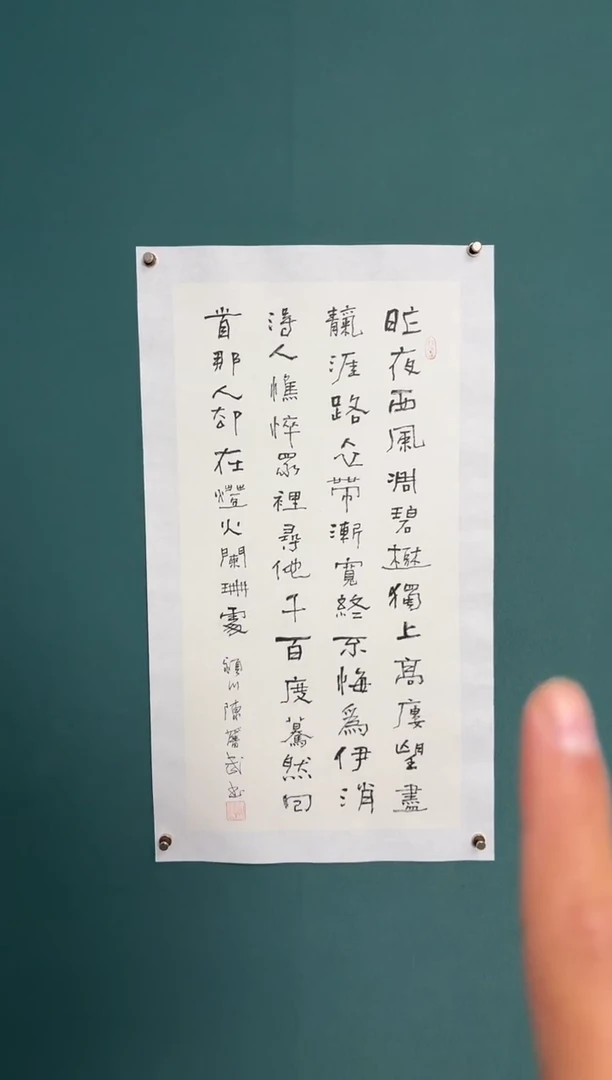 昨夜西風凋碧樹獨上高樓望盡
靝涯路衣帶漸寬終不悔爲伊消
得人憔悴眾裡尋他千百度驀然回
首那人卻在燈火闌珊處 潁川陳武書